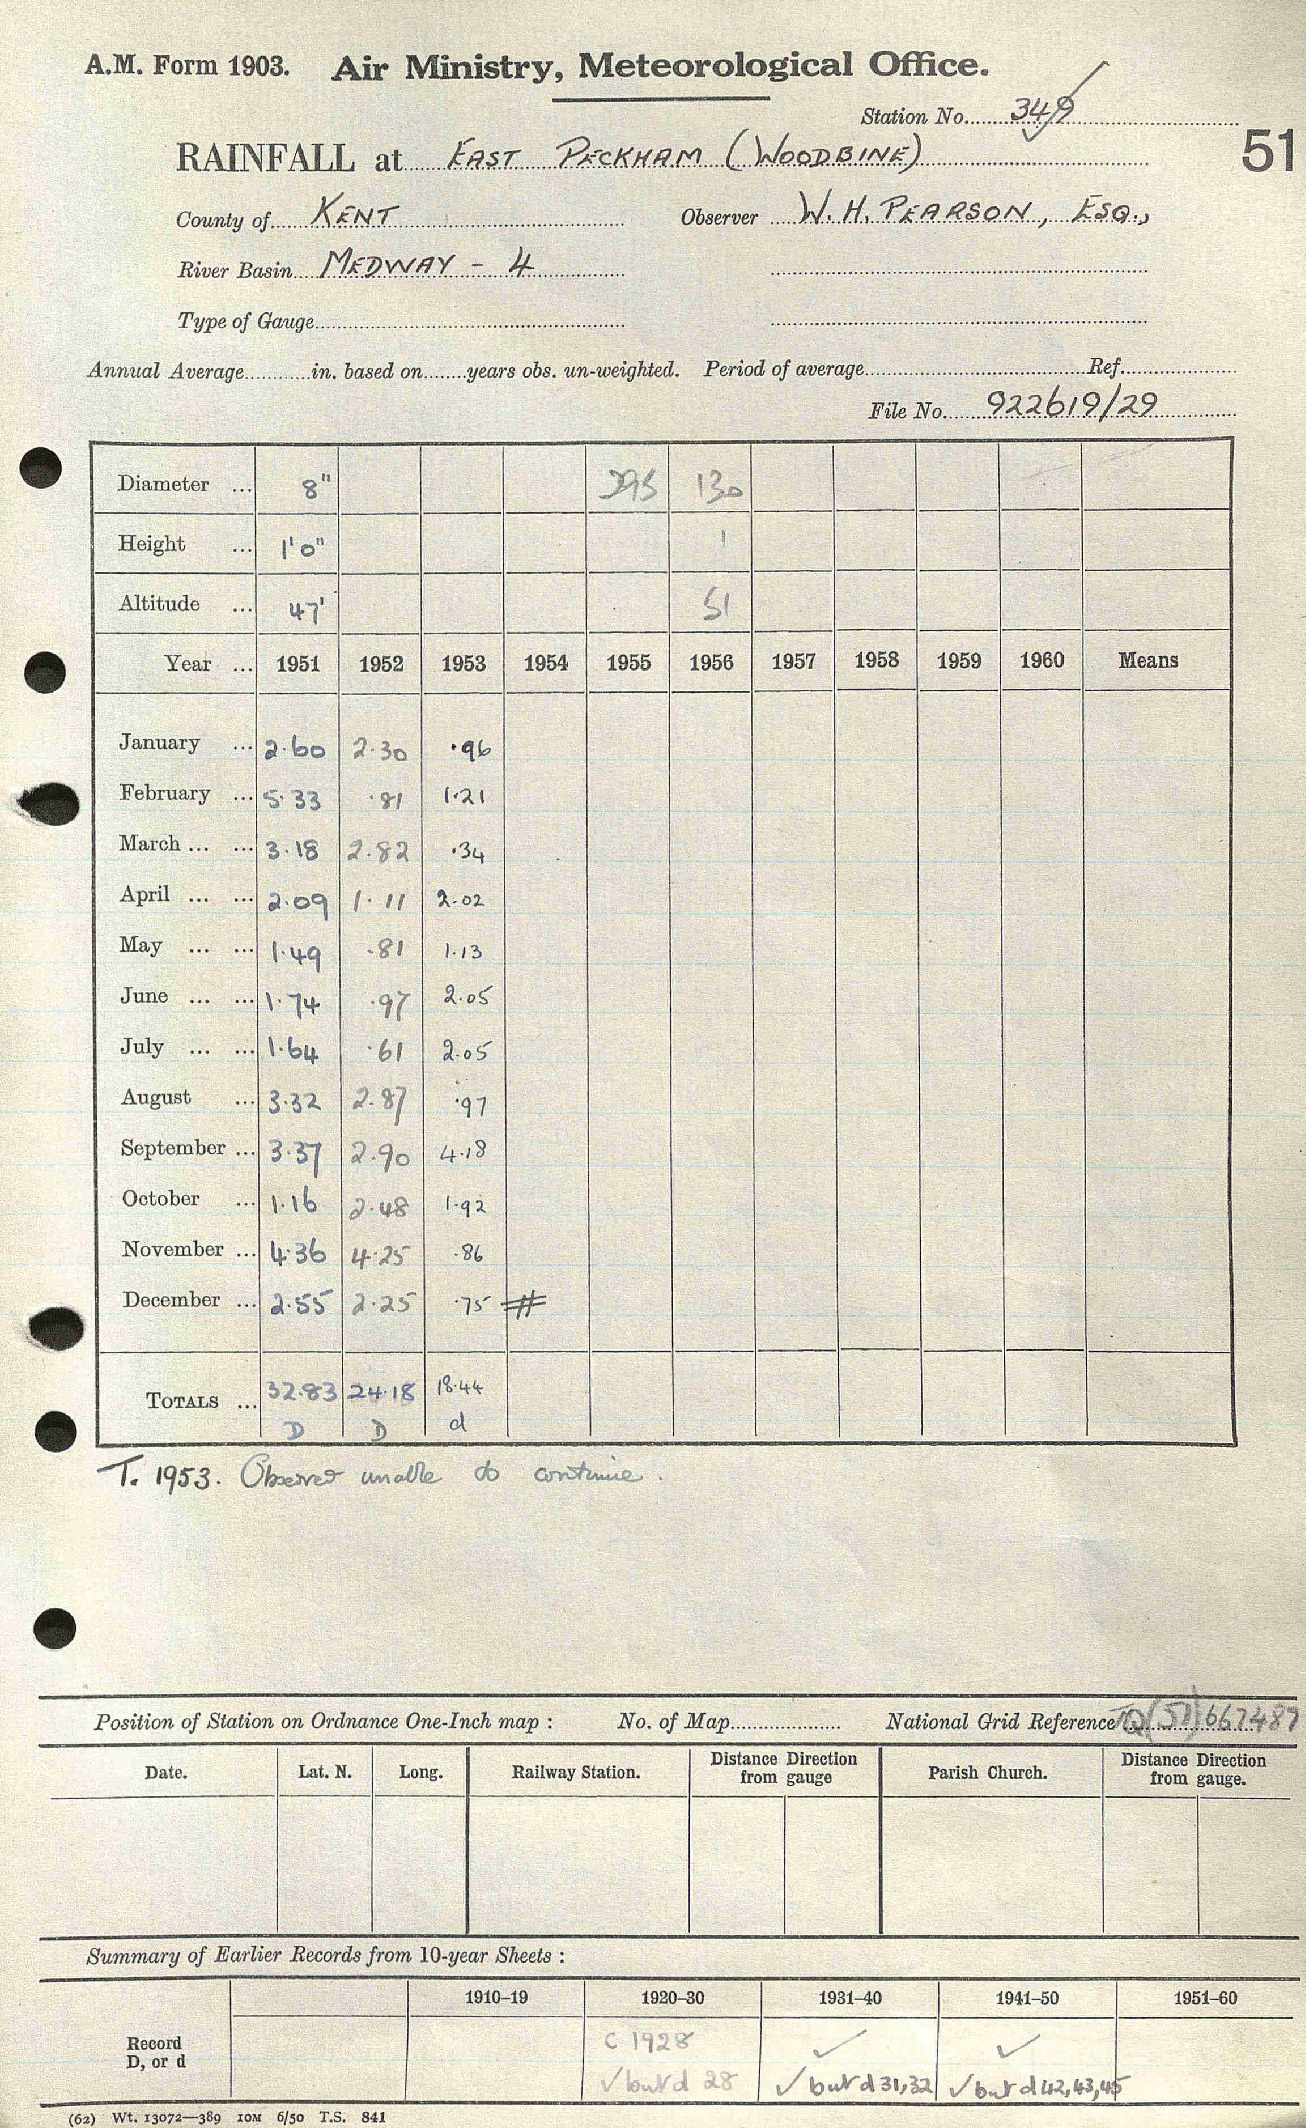 A.M. Form 1903. Air Ministry, Meteorological Office.
Station No. 349
51
RAINFALL at EAST PECKHAM (WOODBINE)
County of KENT Observer W. H. PEARSON, ESQ.,
River Basin MEDWAY - 4
Type of Gauge
Annual Average in. based on years obs. un-weighted. Period of average Ref.
File No. 922619/29
Diameter ... 8" 295 130
Height ... 1'0" 1
Altitude ... 47' 51
Year ... 1951 1952 1953 1954 1955 1956 1957 1958 1959 1960 Means
January ... 2.60 2.30 .96
February ... 5.33 .81 1.21
March ... ... 3.18 2.82 .34
April ... ... 2.09 1.11 2.02
May ... ... 1.49 .81 1.13
June ... ... 1.74 .97 2.05
July ... ... 1.64 .61 2.05
August ... 3.32 2.87 .97
September ... 3.37 2.90 4.18
October ... 1.16 2.48 1.92
November ... 4.36 4.25 .86
December ... 2.55 2.25 .75 #
TOTALS ... 32.83 24.18 18.44
D D d
T. 1953. Observer unable to continue.
Position of Station on Ordnance One-Inch map : No. of Map National Grid Reference TQ(51)667487
Date. Lat. N. Long. Railway Station. Distance Direction from gauge Parish Church. Distance Direction from gauge.
Summary of Earlier Records from 10-year Sheets :
1910–19 1920–30 1931–40 1941–50 1951–60
Record D, or d
C 1928 ✓ ✓
✓ but d 28 ✓ but d 31,32 ✓ but d 42,43,45
(62) Wt. 13072—389 10M 6/50 T.S. 841